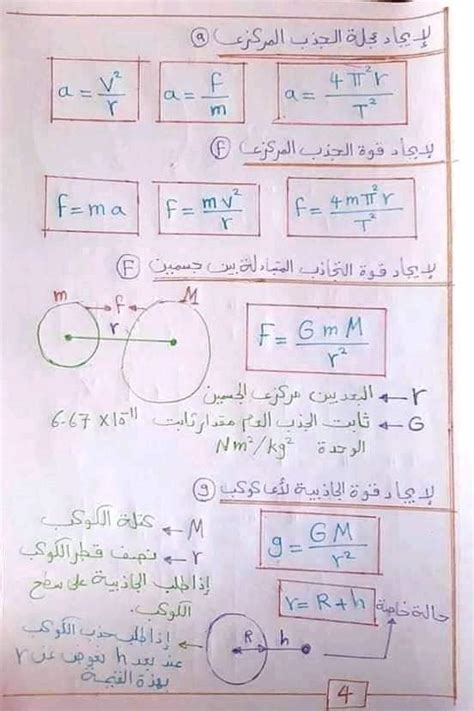 لإيجاد عجلة الجذب المركزى (a)
a = V²/r   a = f/m   a = 4π²r/T²
لإيجاد قوة الجذب المركزى (F)
f = m a   f = mv²/r   f = 4mπ²r/T²
لإيجاد قوة التجاذب المتبادلة بين جسمين (F)
m   f   M
r
F = G m M/r²
r ← البعد بين مركزى الجسمين
G ← ثابت الجذب العام مقدار ثابت 6.67 × 10⁻¹¹
الوحدة Nm²/kg²
لإيجاد قوة الجاذبية لأى كوكب (g)
g = GM/r²
M ← كتلة الكوكب
r ← نصف قطر الكوكب
إذا طلب الجاذبية على سطح
الكوكب.
حالة خاصة r = R + h
R   h
إذا طلب جذب الكوكب
عند بعد h نعوض عن r
بهذة القيمة
4